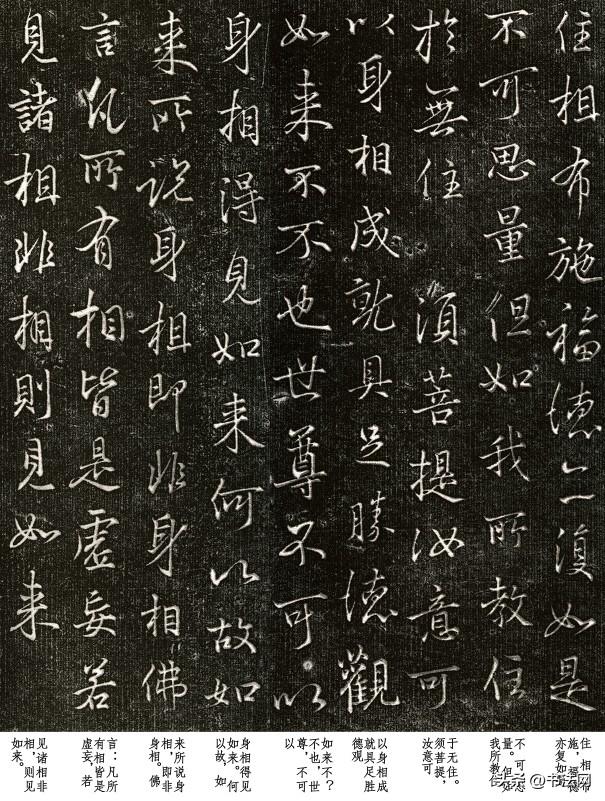 住相布施福德亦復如是
不可思量但如我所教住
於無住須菩提汝意可
以身相成就具足勝德觀
如来不不也世尊不可以
身相得見如来何以故如
来所説身相即非身相佛
言凡所有相皆是虚妄若
見諸相非相則見如来
住相布
施，福德
亦复如是
不可思
量。但如
我所教住
于无住。
须菩提，
汝意可
以身相成
就具足胜
德观
如来不？
不也，世
尊，不可
以
身相得见
如来。何
以故，如
来所说身
相，即非
身相。佛
言：凡所
有相皆是
虚妄。若
见诸相非
相，则见
如来。